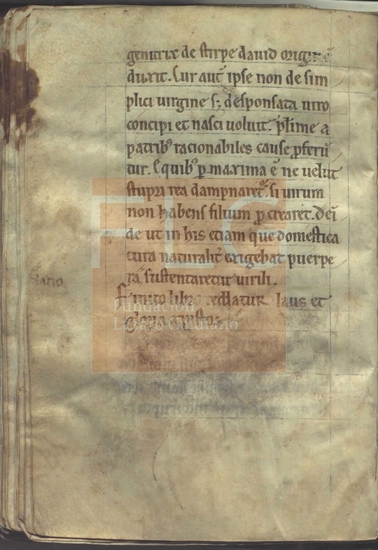 genitrix de stirpe david origine
duxit. Cur aut ipse non de sim
plici virgine s; desponsata viro
concipi et nasci voluit. plime a
patrib racionabiles cause pferu
tur. E quib p maxima e ne velut
stupri rea dampnaret. si virum
non habens filium pcrearet. Dei
de ut in his etiam que domestica
cura naturalit exigebat puerpe
ra sustentaretur virili.
Finito libro reddatur laus et
gloria
Fundación
Lázaro Galdiano